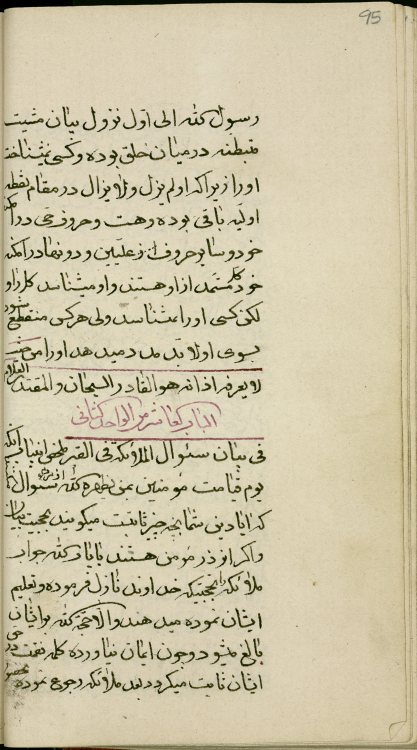 95
رسول الله الی اول نزول بیان مشیت
در میان خلق بوده و کسی نشناخته
او را زیرا که او لم یزل و لا یزال در مقام نقطه
اولیه باقی بوده و هست و حروف حی در
خود و سایر حروف از علیین و دونها در امکنه
خود کل مستمد از او هستند و او میشناسد کل را و
لکن کسی او را نشناسد ولی هر کس منقطع شود
بسوی او لابد مدد میدهد او را من حیث
لا یعرفه اذ انه هو القادر السبحان والمقتدر العلام
الباب العاشر من الواحد الثانی
فی بیان سئوال الملائکة فی القبر
یوم قیامت مؤمنین بمن یظهره الله سئوال از مردم
که ایا دین شما بچه چیز ثابت میگویند بحجیت بیان
و اگر او در مومن هستند بایات الله جواب
ملائکه را بحجتیکه خداوند نازل فرموده و تعلیم
ایشان نموده میدهند و الا حجة الله بر ایشان
بالغ میشود و چون ایمان نیاورده کلمه نقمت در حق
ایشان ثابت میگردد بعد ملائکه رجوع نموده